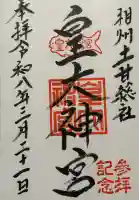 相州土甘総社
皇大神宮
奉拝令和八年三月二十一日
参拝
記念